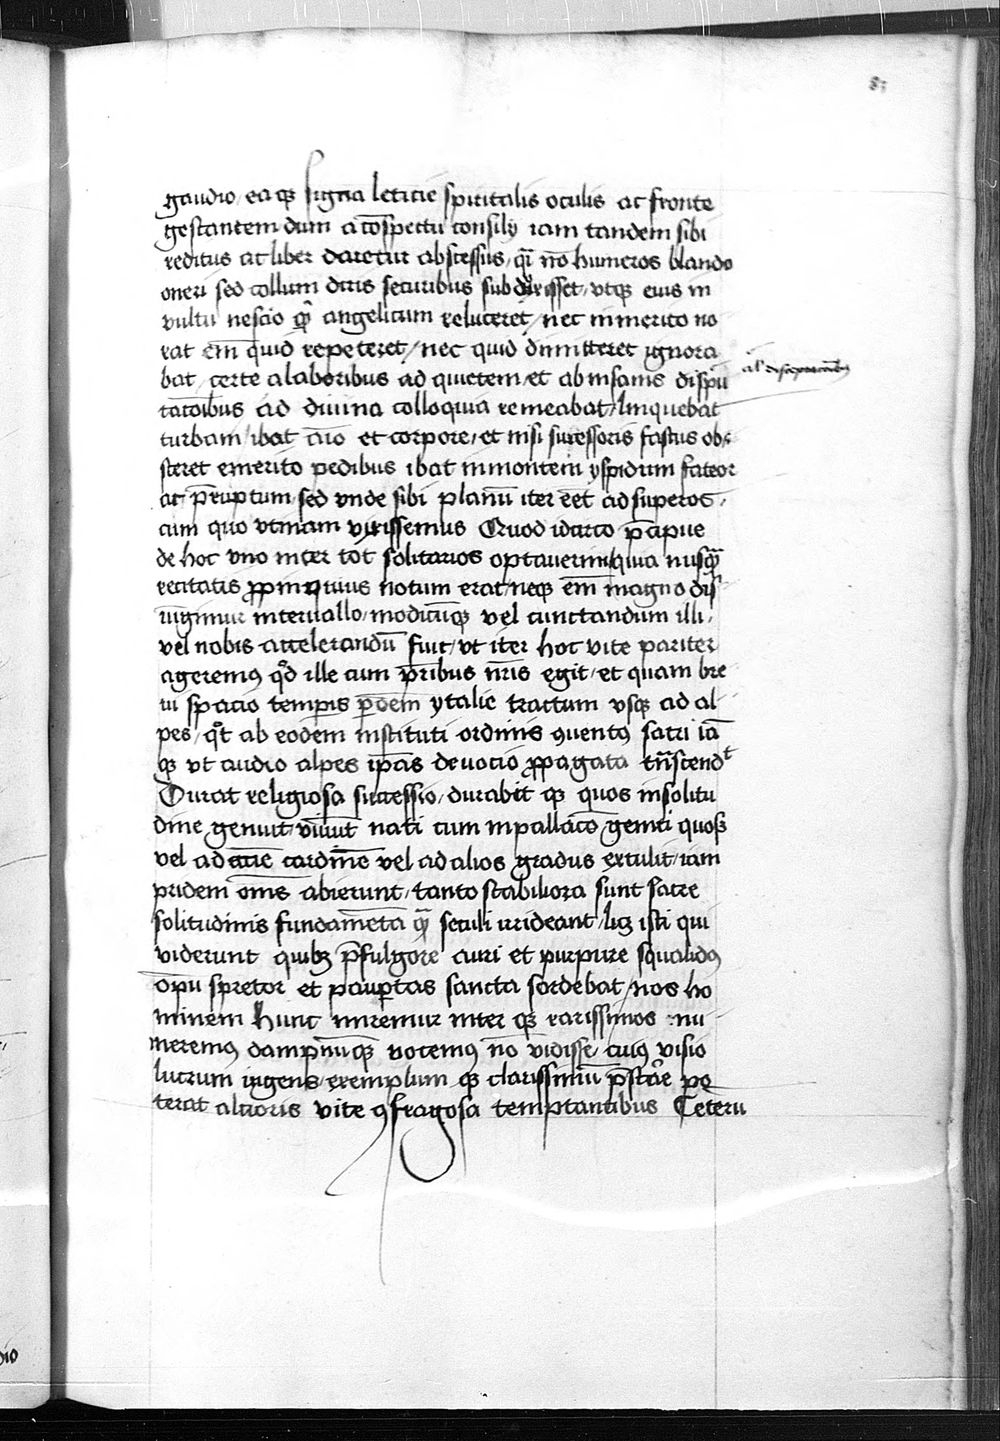 81
gaudio / ea qꝫ signa leticie spiritalis oculis ac fronte
gestantem dum a cōspectu consilij iam tandem sibi
reditus ac liber daretur abscessus / qͣi nō humeros blando
oneri sed collum diris securibus subduxisset / vtqꝫ eius in
vultu nescio qͥd angelicum reluceret / nec inmerito no
rat em̄ quid repeteret / nec quid dimitteret ignora
bat / certe a laboribus ad quietem / et ab insanis dispu
al' disceptacionibus
tacōibus ad diuina colloquia remeabat / linquebat
turbam / ibat aīo et corpore / et nisi successoris fastus ob
steret emerito pedibus ibat in montem yspidum fateor
ac p̄ruptum / sed vnde sibi planū iter eēt ad superos /
cum quo vtinam vixissemus Quod idcirco p̄cipue
de hoc vno inter tot solitarios optauerim / quia nusqͣ
recitatis ꝓpinquius votum erat / neqꝫ em̄ magno dis
iūgimur interuallo / modicūqꝫ vel cunctandum illi /
vel nobis accelerandū fuit / vt iter hoc vite pariter
ageremꝰ qd̓ ille cum pr̄ibus nr̄is egit / et quam bre
ui spacio temp̄is p̄dem ytalie tractum vsqꝫ ad al
pes / qͦt ab eodem instituti ordinis ꝯuentꝰ sacri iā
qꝫ vt audio alpes ip̄as deuocio ꝓpagata trn̄scendͭ
Durat religiosa successio / durabit qꝫ quos insolitu
dine genuit / viuūt nati cum in pallacō geniti quos
vel ad cardinē vel ad alios gradus extulit / iam
pridem om̄s abierunt / tanto stabiliora sunt sacre
solitudinis fundamēta qͣ seculi irrideant / lꝫ isti qui
viderunt quibꝫ p̄fulgore auri et purpure squalidꝰ
opū spretor et paup̄tas sancta sordebat / nos ho
minem hunc miremur inter qꝫ rarissimos nu
meremꝰ dampnūqꝫ vocemꝰ nō vidisse / cuiꝰ visio
lucrum ingens / exemplum qꝫ clarissimū p̄stare po
terat alcioris vite ꝯfragosa temptantibus Ceterū